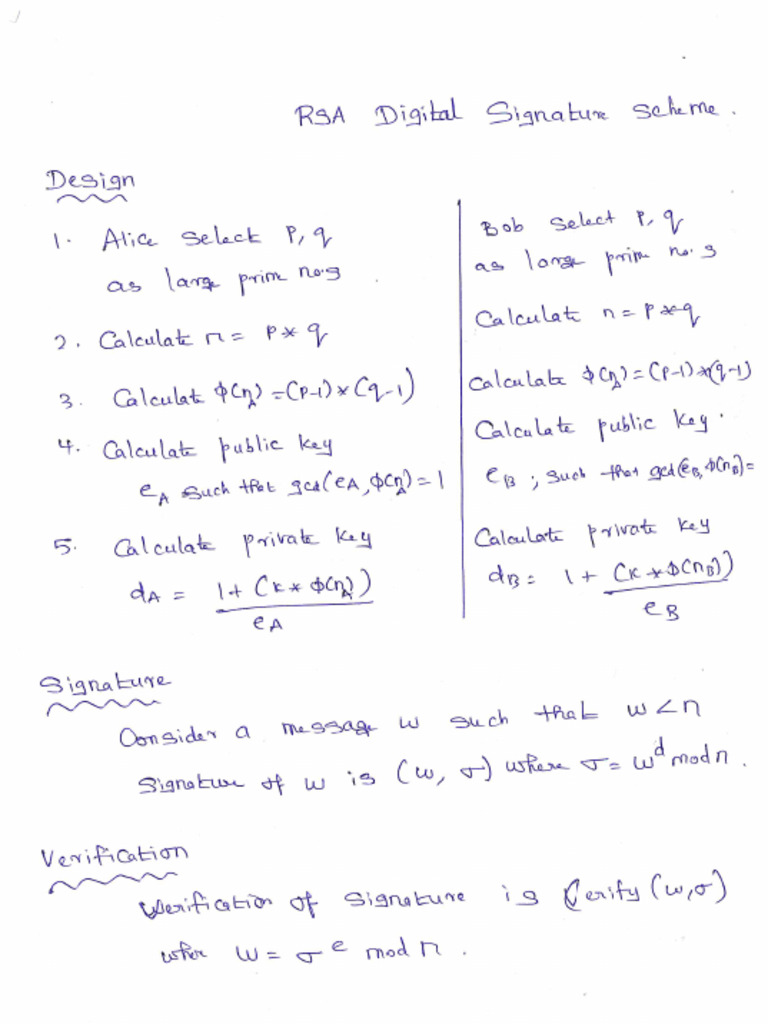 RSA Digital Signature Scheme.
Design
1. Alice Select P, q
as large prim no.s
2. Calculate n = P * q
3. Calculate ϕ(n_A) = (P-1) * (q-1)
4. Calculate public key
e_A such that gcd(e_A, ϕ(n_A)) = 1
5. Calculate private key
d_A = 1 + (k * ϕ(n_A))
e_A
Bob Select P, q
as large prim no.s
Calculate n = P * q
Calculate ϕ(n_A) = (P-1) * (q-1)
Calculate public key.
e_B ; such that gcd(e_B, ϕ(n_B) =
Calculate private key
d_B = 1 + (k * ϕ(n_B))
e_B
Signature
Consider a message w such that w < n
Signature of w is (w, σ) where σ = w^d mod n.
Verification
Verification of signature is Verify (w, σ)
wher w = σ^e mod n.